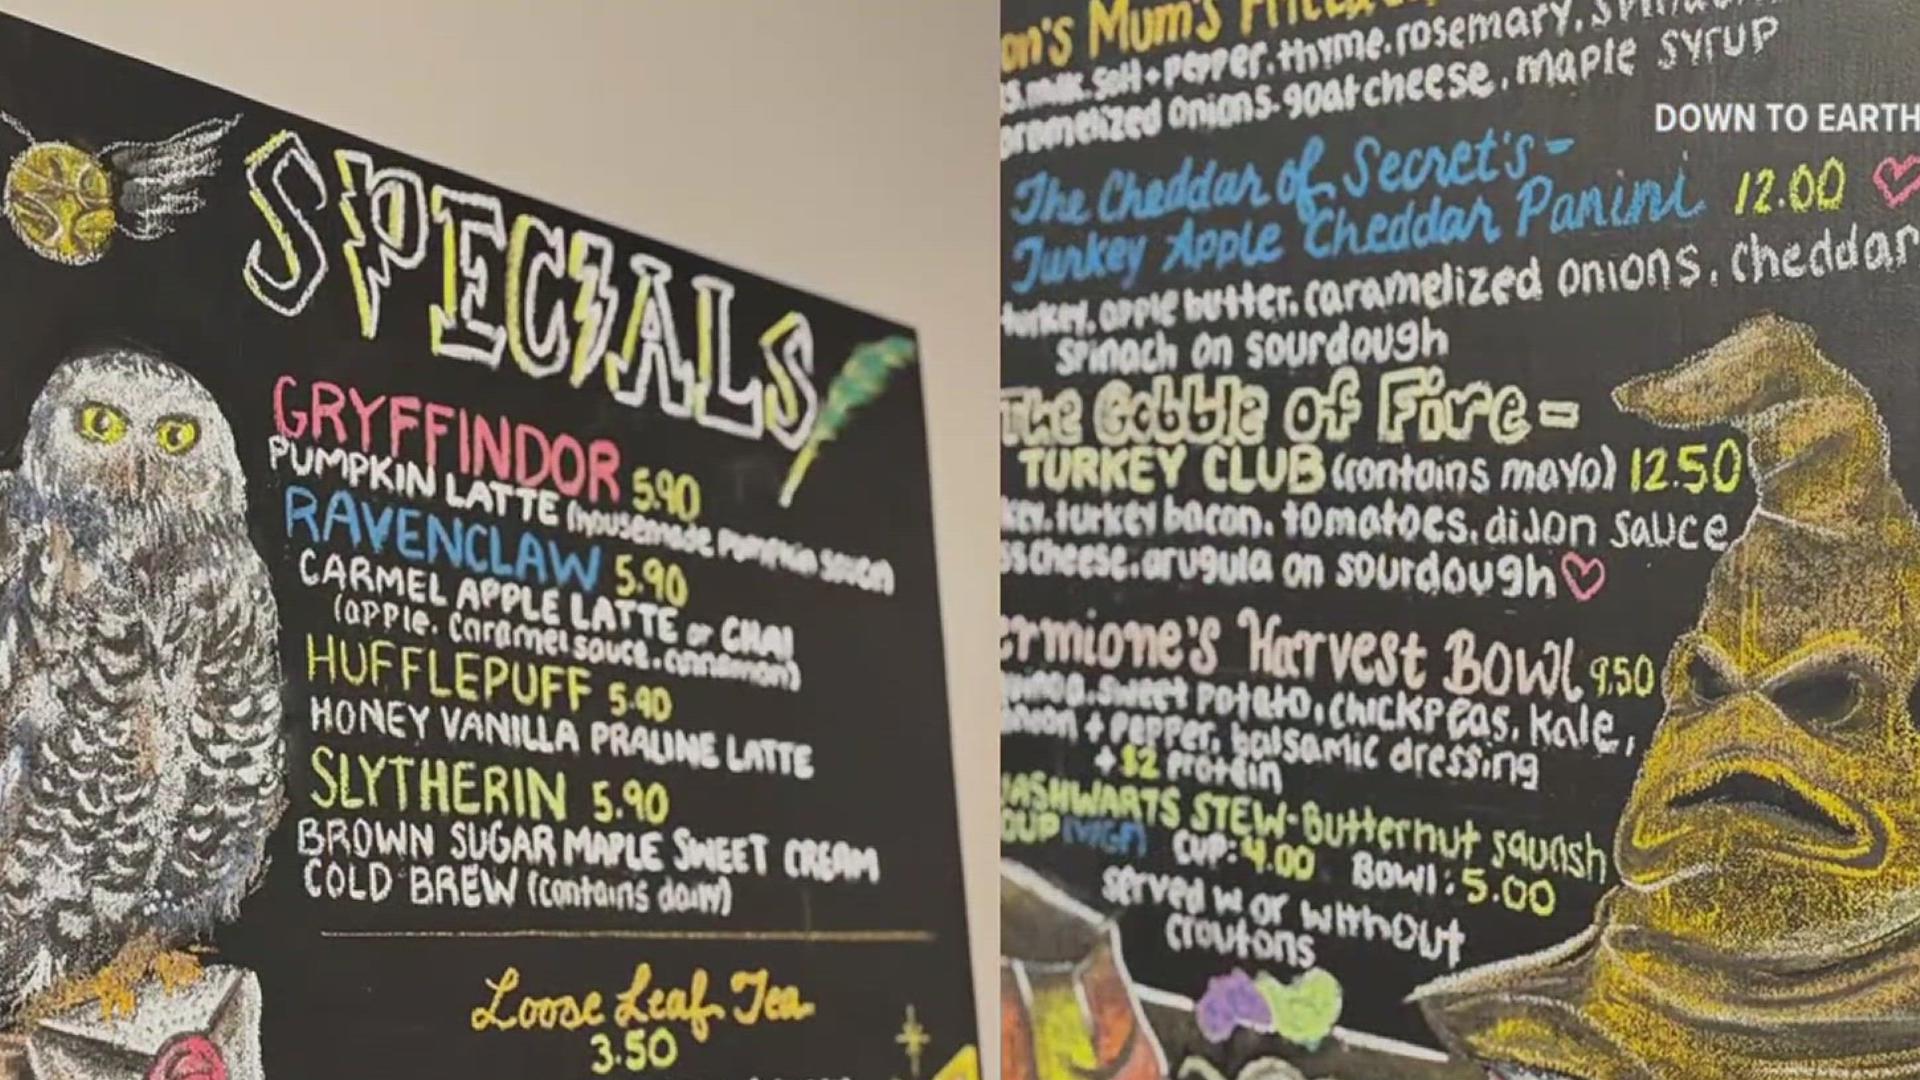 SPECIALS
GRYFFINDOR 5.90
PUMPKIN LATTE (housemade pumpkin sauce)
RAVENCLAW 5.90
CARMEL APPLE LATTE or CHAI
(apple, caramel sauce, cinnamon)
HUFFLEPUFF 5.90
HONEY VANILLA PRALINE LATTE
SLYTHERIN 5.90
BROWN SUGAR MAPLE SWEET CREAM
COLD BREW (contains dairy)
Loose Leaf Tea
3.50
on's Mum's
milk, salt + pepper, thyme, rosemary,
aramelized onions, goat cheese, maple syrup
DOWN TO EARTH
The Cheddar of Secret's -
Turkey Apple Cheddar Panini 12.00
turkey, apple butter, caramelized onions, cheddar
spinach on sourdough
The Gobble of Fire -
TURKEY CLUB (contains mayo) 12.50
key, turkey bacon, tomatoes, dijon sauce
ss cheese, arugula on sourdough
ermione's Harvest Bowl 9.50
sweet potato, chickpeas, kale,
+ pepper, balsamic dressing
+ $2 protein
ASHWARTS STEW - Butternut squash
OUP CUP: 4.00 BOWl: 5.00
served w or without
croutons